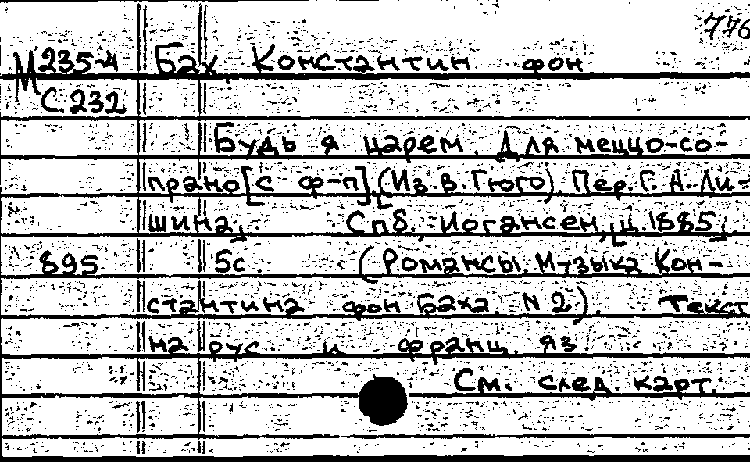 776
М 235-4 Бах, Константин фон
С 232
Будь я царем. Для меццо-со-
прано [с ф-п]. (Из В. Гюго). Пер. Г. А. Ли-
шина. Спб., Иогансен, ц. 1885.
895 5с. (Романсы. Музыка Кон-
стантина фон Баха. N 2). Текст
на рус. и франц. яз.
См. след. карт.